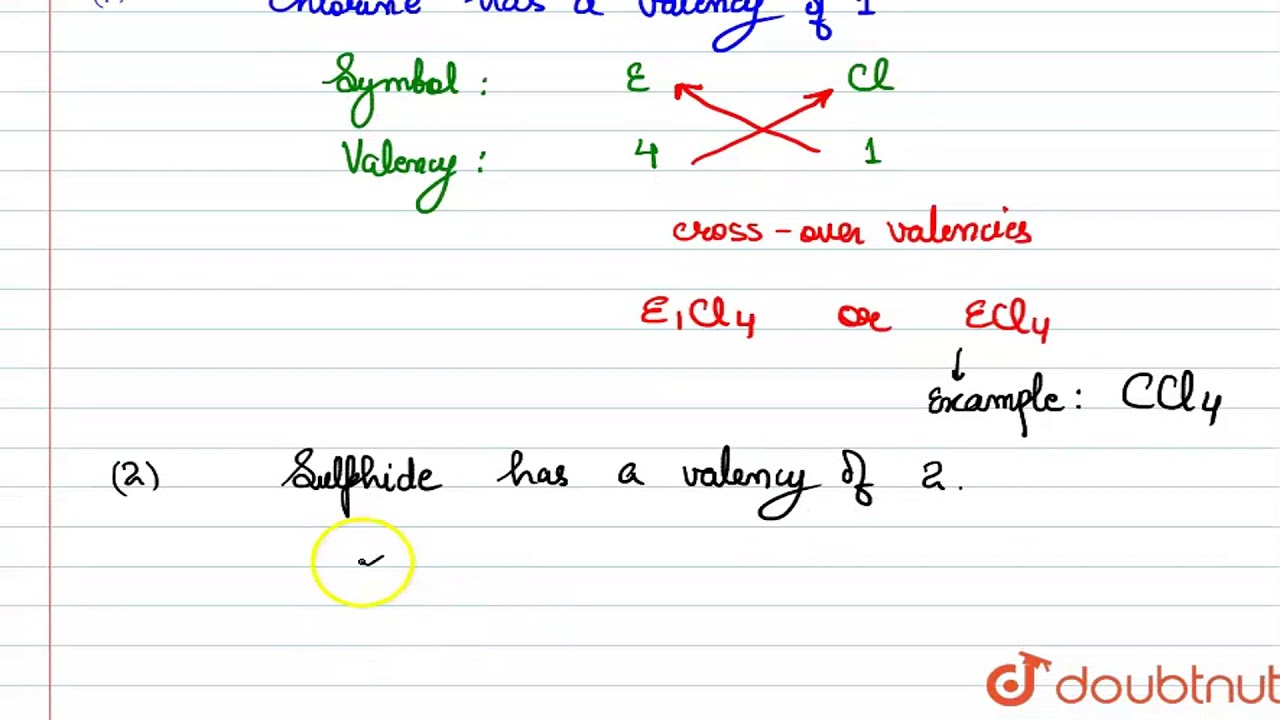 Chlorine has a valency of 1
Symbol : E Cl
Valency : 4 1
cross-over valencies
E₁Cl₄ or ECl₄
Example : CCl₄
(2) Sulphide has a valency of 2.
doubtnut